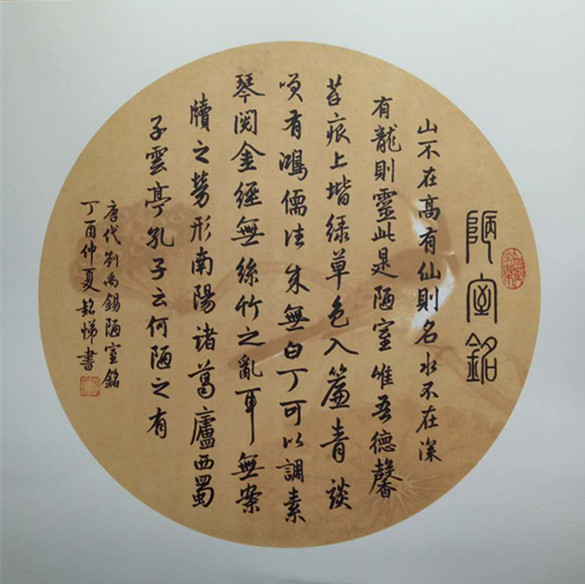 陋室銘
山不在高有仙則名水不在深
有龍則靈此是陋室唯吾德馨
苔痕上堦綠草色入簾青談
唄有鴻儒往來無白丁可以調素
琴閱金經無絲竹之亂耳無案
牘之勞形南陽諸葛廬西蜀
子雲亭孔子云何陋之有
唐代劉禹錫陋室銘
丁酉仲夏銘悌書